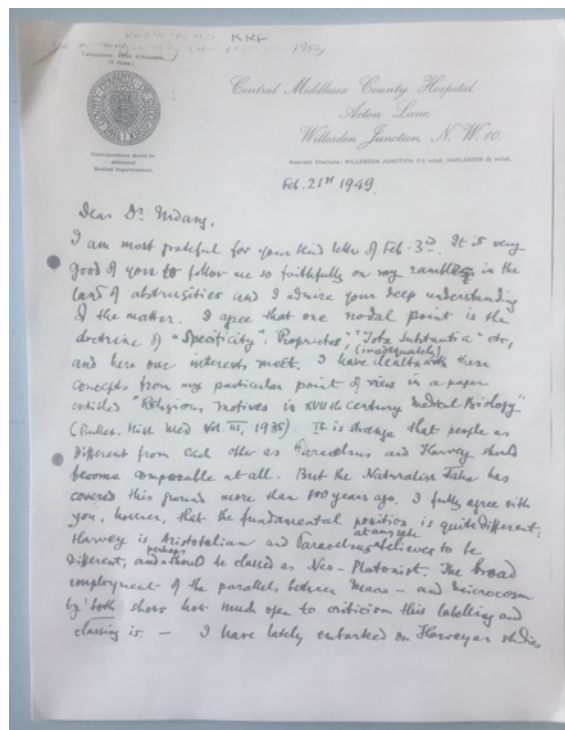 KMF
1950
Correspondence should be
addressed
Medical Superintendent.
Central Middlesex County Hospital,
Acton Lane,
Willesden Junction, N.W.10.
Nearest Stations: WILLESDEN JUNCTION (½ mile), HARLESDEN (½ mile).
Feb. 21st 1949
Dear Dr.
I am most grateful for your kind letter of Feb. 3rd. It is very
good of you to follow me so faithfully on my rambles in the
land of abstrusities and I admire your deep understanding
of the matter. I agree that one nodal point is the
doctrine of "Specificity", "Proprietas", "Tota Substantia" etc,
and here our interests meet. I have (inadequately) dealt with these
concepts from my particular point of view in a paper
entitled "Religious motives in XVIIth century medical Biology"
(Bullet. Hist Med Vol. III, 1935). It is strange that people as
different from each other as Paracelsus and Harvey should
become comparable at all. But the Naturalist Jahn has
covered this ground more than 100 years ago. I fully agree with
you, however, that the fundamental position is quite different:
Harvey is Aristotelian and Paracelsus at any rate believes to be
different, and perhaps should be classed as Neo-Platonist. The broad
employment of the parallel between Macro- and microcosm
by both shows how much open to criticism this labelling and
classing is. — I have lately embarked on Harveyan studies